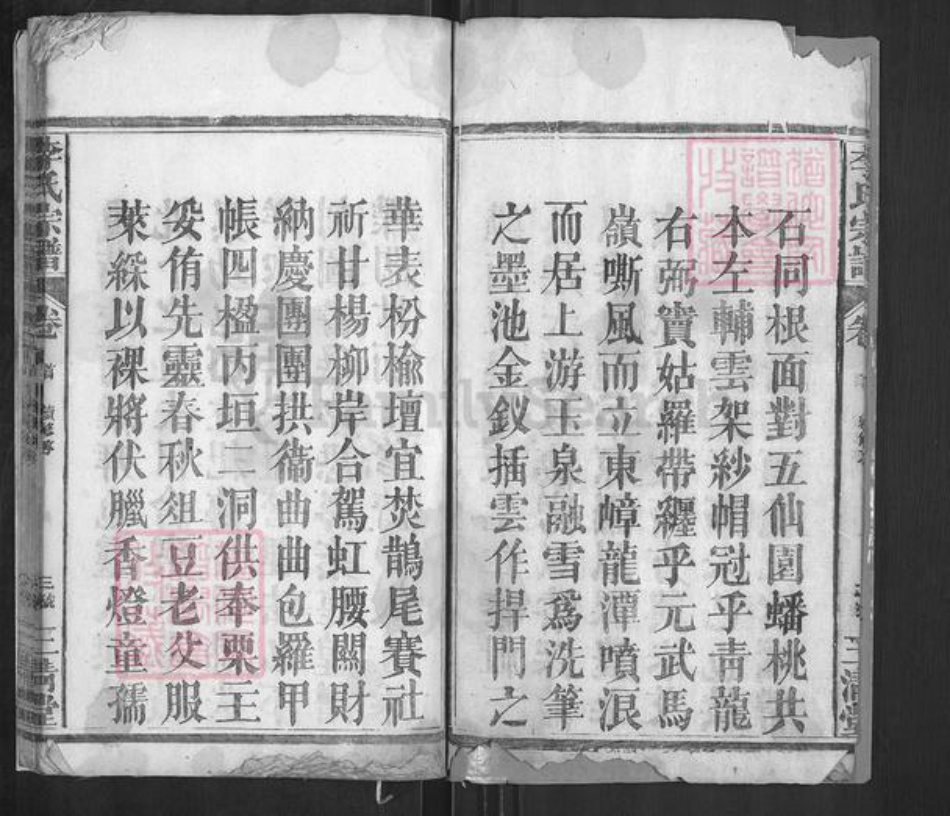 石同根面對五仙園蟠桃共
本左輔雲架紗帽冠乎青龍
右弼寶姑羅帶纒乎元武馬
嶺嘶風而立東嶂龍潭噴浪
而居上游玉泉融雪爲洗筆
之墨池金釵插雲作捍門之
華表枌榆壇宜焚鵲尾賽社
祈甘楊柳岸合駕虹腰關財
納慶團團拱衞曲曲包羅甲
帳四楹丙垣二洞供奉栗主
妥侑先靈春秋俎豆老父服
萊綵以裸將伏臘香燈童孺
李氏宗譜
卷
首
三槐
三清堂
FamilySearch